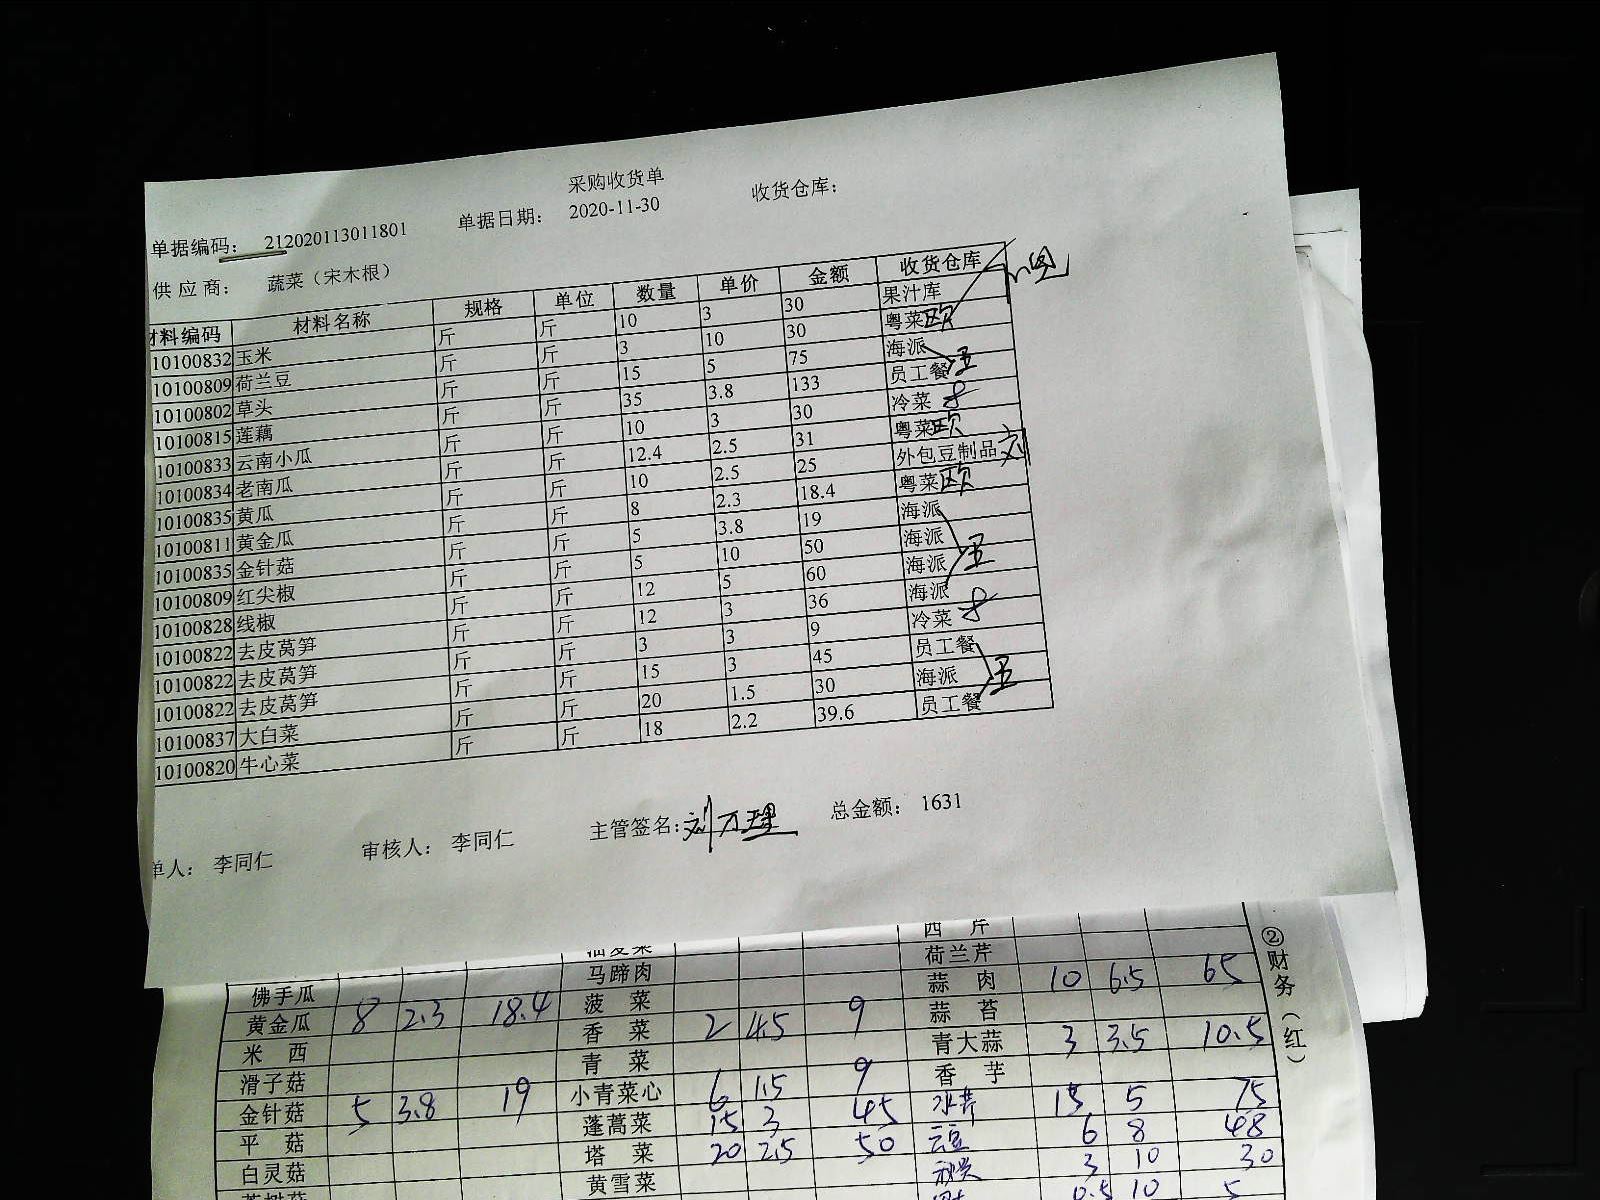 采购收货单
单据编码： 212020113011801 单据日期： 2020-11-30 收货仓库：
供应商： 蔬菜（宋木根）
材料编码 材料名称 规格 单位 数量 单价 金额 收货仓库
10100832 玉米 斤 斤 10 3 30 果汁库
10100809 荷兰豆 斤 斤 3 10 30 粤菜 欧
10100802 草头 斤 斤 15 5 75 海派
10100815 莲藕 斤 斤 35 3.8 133 员工餐
10100833 云南小瓜 斤 斤 10 3 30 冷菜
10100834 老南瓜 斤 斤 12.4 2.5 31 粤菜 欧
10100835 黄瓜 斤 斤 10 2.5 25 外包豆制品 刘
10100811 黄金瓜 斤 斤 8 2.3 18.4 粤菜 欧
10100835 金针菇 斤 斤 5 3.8 19 海派
10100809 红尖椒 斤 斤 5 10 50 海派
10100828 线椒 斤 斤 12 5 60 海派
10100822 去皮莴笋 斤 斤 12 3 36 海派
10100822 去皮莴笋 斤 斤 3 3 9 冷菜
10100822 去皮莴笋 斤 斤 15 3 45 员工餐
10100837 大白菜 斤 斤 20 1.5 30 海派
10100820 牛心菜 斤 斤 18 2.2 39.6 员工餐
单人： 李同仁 审核人： 李同仁 主管签名： 刘万理 总金额： 1631
西芹
马蹄肉 荷兰芹
佛手瓜 菠菜 蒜肉 10 6.5 65
黄金瓜 8 2.3 18.4 香菜 2 4.5 9 蒜苔
米西 青菜 青大蒜 3 3.5 10.5
滑子菇 小青菜心 6 1.5 9 香芋
金针菇 5 3.8 19 蓬蒿菜 15 3 45 水芹 15 5 75
平菇 塔菜 20 2.5 50 云豆 6 8 48
白灵菇 黄雪菜 3 10 30
0.5 10 5
②财务（红）